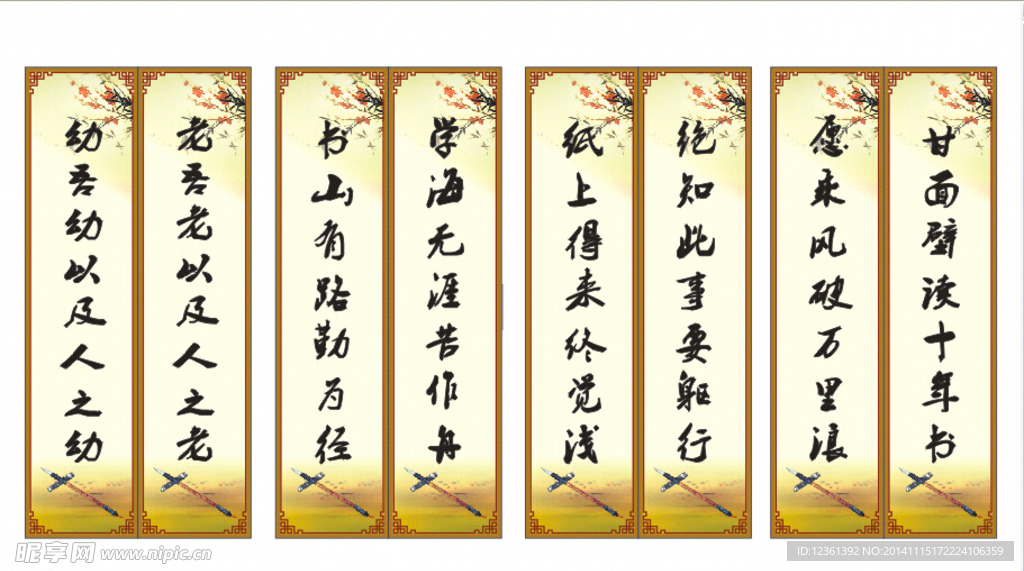 幼吾幼以及人之幼
老吾老以及人之老
书山有路勤为径
学海无涯苦作舟
纸上得来终觉浅
绝知此事要躯行
愿乘风破万里浪
甘面壁读十年书
昵享网 www.nipic.cn
ID:12361392 NO:20141115172224106359